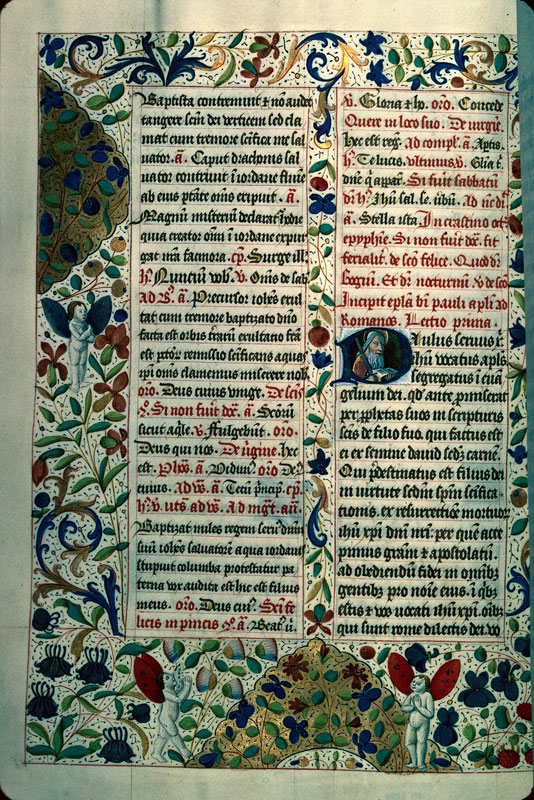 Baptista contremuit & nō audet
tangere scm̄ dei verticem sed cla
mat cum tremore scīfica me sal
uator. a. Caput draconis sal
uator contriuit ī iordane flumīe
ab eius ptāte om̄s eripuit. a.
Magnū misteriū declarat hodie
quia creator oīm ī iordane expur
gat nrā facinora. cp. Surge ill.
h. Nunciū vob. v. Om̄s de sab
Ad B. a. Precursor iohēs exul
tat cum tremore baptizato dn̄o
facta est orbis traru exultatio fca
est pctōr remissio scificans aquas
ipi om̄s clamemus miserere nob
oro. Deus cuius vnige.
Si non fuit dcē. a.
sicut aqle. v. ffulgebūt. oro
Deus qui nos. De v̄gine. hec
est. a. Vidim. oro De
cuius. Ad a. Tecū prīcip. cp.
h. v. ad mgt. añ.
Baptizat miles regem seru dn̄m
suū iohēs saluatorē aqua iordanis
stupuit columba protestatur pa
terna vox audita est hic est filius
meus. oro. Deus cui. Sci fe
licis in pincis a. Beat v.
v. Gloria & ho. oro. Concede
Quere in loco suo. De virgīe.
hec est reg. ad compl. a. Aptis.
h. Te lucis. vltimus v. Glia t
dn̄e q̄ appar. Si fuit sabbatū
h. Ihū sal. se.
a. Stella ista. In crastino oct
epyphīe. Si non fuit dcē. fit
ferialit. de scō felice. Quod
Et nocturnū v de scō
Incipit epl̄a bī pauli apl̄i ad
Romanos. Lectio prima.
Paulus seruus x
ihū vocatus apl̄s
segregatus ī euā
gelium dei. qd ante promiserat
per pphetas suos in scripturis
scīs de filio suo. qui factus est
ei ex semine dauid scd̄ carnē.
Qui pdestinatus est filius dei
in virtute scdm spm scīfica
tionis. ex resurrectiōe mortuor
ihū xp̄i dn̄i nr̄i: per quē acce
pimus grām & apostolatū.
ad obediendū fidei in omībz
gentibz pro noīe eius. ī qbz
estis & vos vocati ihū xp̄i. oībz
qui sunt rome dilectis dei. vo